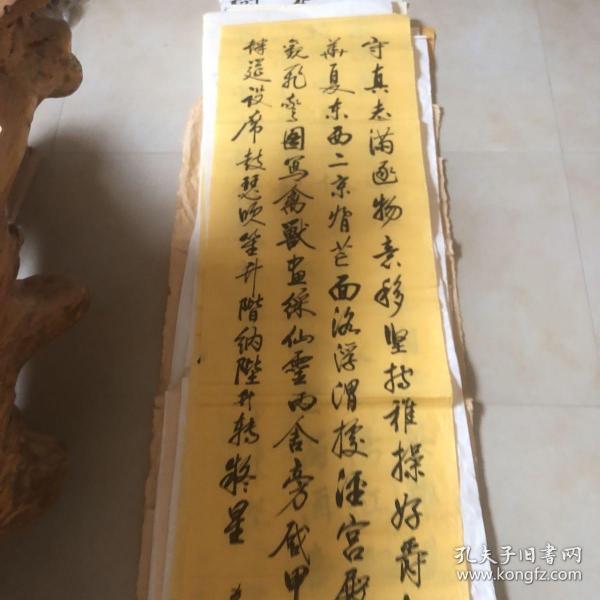 守真志满逐物意移坚持雅操好爵
华夏东西二京背芒面洛浮渭据泾宫殿
观飞惊图写禽兽画綵仙灵丙舍旁启甲
肆筵设席鼓瑟吹笙升阶纳陛弁转疑星
孔夫子旧书网
www.kongfz.com